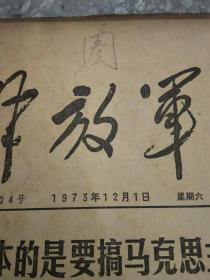 圈
解放軍
04号 1973年12月1日 星期六
本的是要搞马克思主